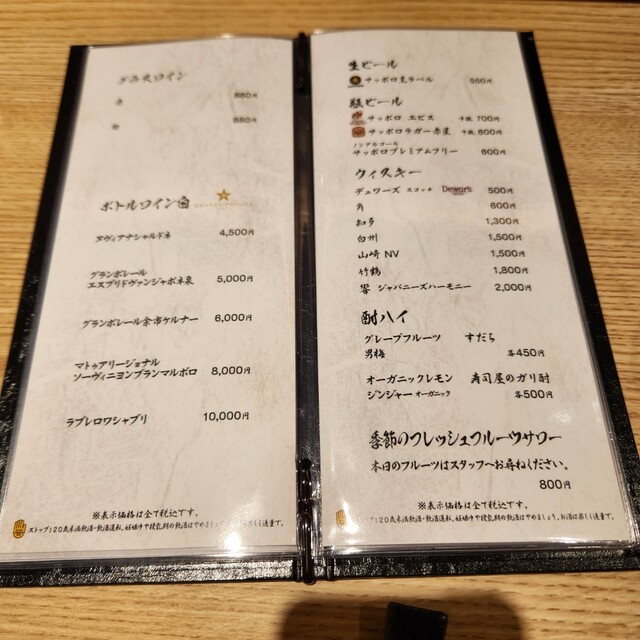 グラスワイン
赤 880円
白 880円
ボトルワイン白
ヌヴィアナシャルドネ 4,500円
グランポレール
エスプリドヴァンジャポネ泉 5,000円
グランポレール余市ケルナー 6,000円
マトゥアリージョナル
ソーヴィニヨンブランマルボロ 8,000円
ラブレロワシャブリ 10,000円
※表示価格は全て税込です。
ストップ!20歳未満飲酒・飲酒運転。妊娠中や授乳期の飲酒はやめましょう。お酒は楽しく適量で。
生ビール
サッポロ黒ラベル 550円
瓶ビール
サッポロ エビス 中瓶 700円
サッポロラガー赤星 中瓶 600円
ノンアルコール
サッポロプレミアムフリー 600円
ウィスキー
デュワーズ スコッチ Dewar's 500円
角 600円
知多 1,300円
白州 1,500円
山崎 NV 1,500円
竹鶴 1,800円
響 ジャパニーズハーモニー 2,000円
酎ハイ
グレープフルーツ すだち
男梅 各450円
オーガニックレモン 寿司屋のガリ酎
ジンジャー オーガニック 各500円
季節のフレッシュフルーツサワー
本日のフルーツはスタッフへお尋ねください。
800円
※表示価格は全て税込です。
ストップ!20歳未満飲酒・飲酒運転。妊娠中や授乳期の飲酒はやめましょう。お酒は楽しく適量で。